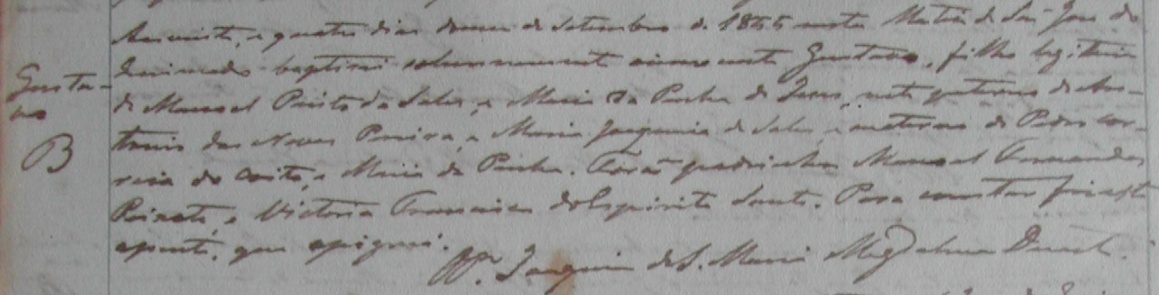 Aos vinte, e quatro dias do mez de Setembro de 1855 nesta Matriz de São José do
Gusta-
vo
B
Queimado baptisei solemnemente innocente Gustavo, filho legitimo
de Manoel Pinto de Sales, e Maria da Penha de Jesus, neto paterno de An-
tonio das Neves Pereira, e Maria Joaquina de Sales, e materno de Pedro Cor-
reia do Couto, e Maria da Penha. Forão padrinhos Manoel Fernandes
e Victoria Francisca do Espirito Santo. Para constar fiz este
assento, que assignei.
Joaquim de S. Maria Magdalena Duarte.